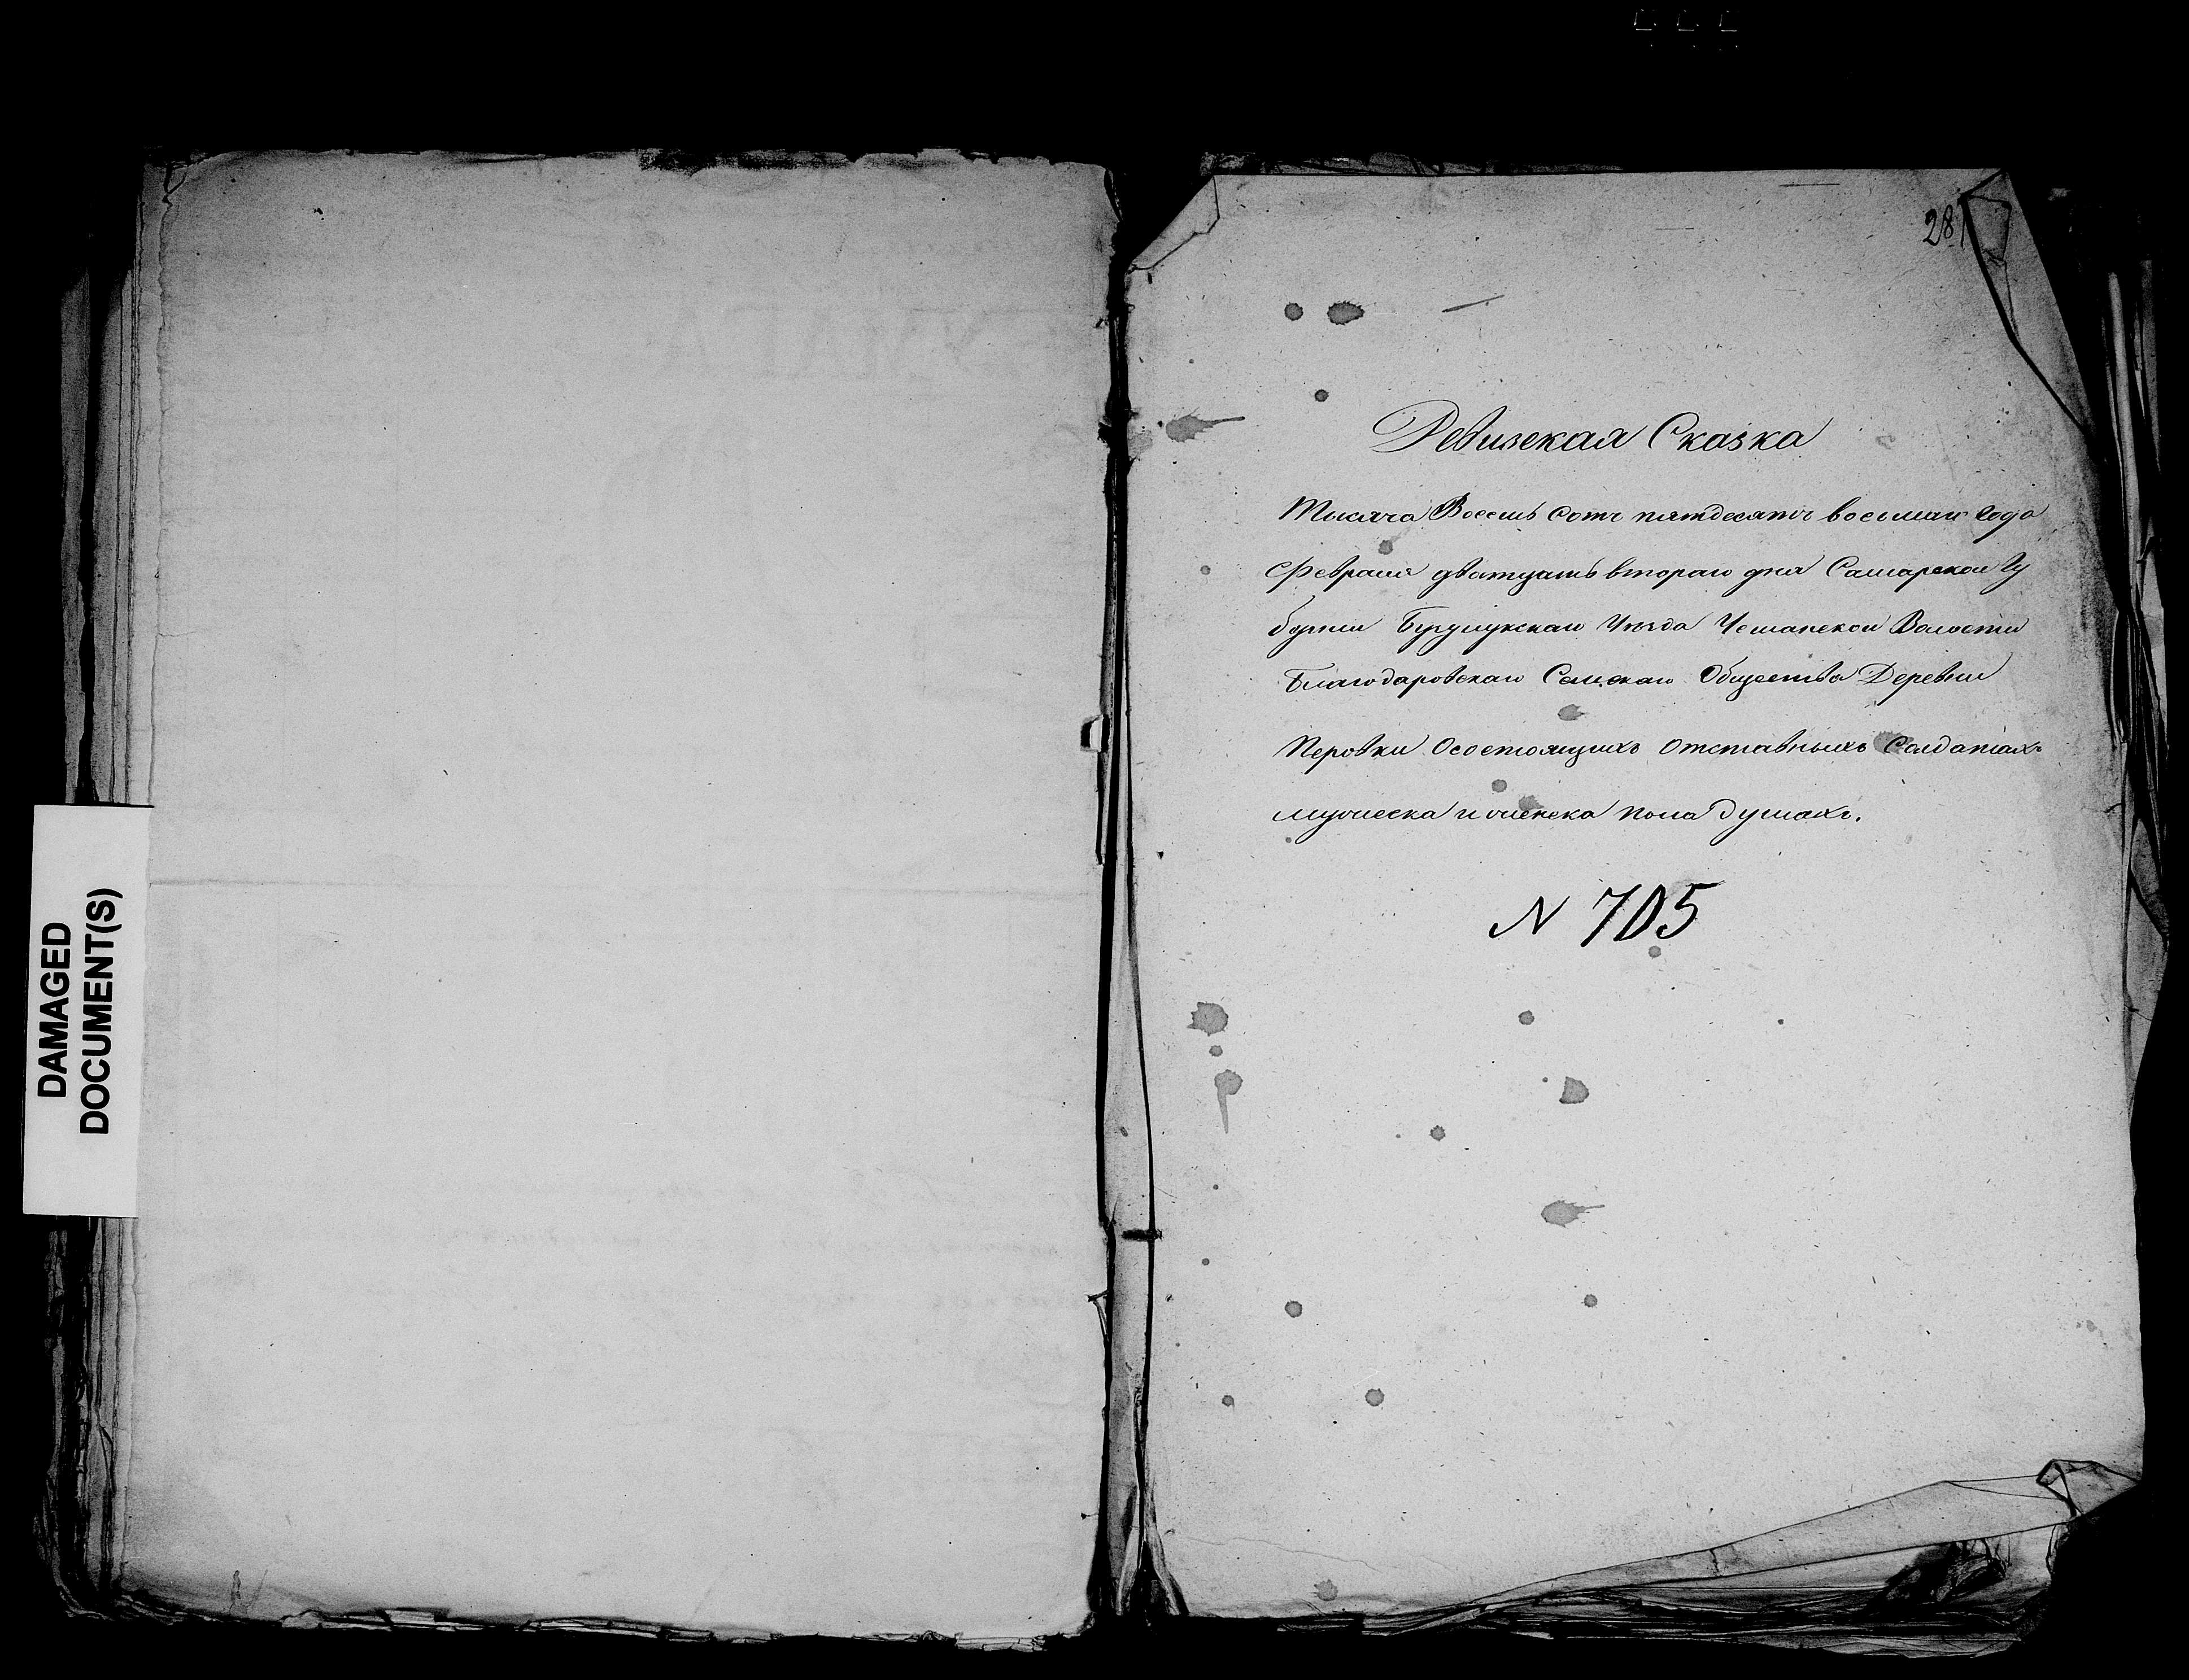 DAMAGED
DOCUMENT(S)
281
Ревизская Сказка
Тысяча Восемь сотъ пятдесятъ восьмаго года
Февраля дватцать втораго дня Самарской Гу
бернии Бузулукскаго Уѣзда Чеманской Волости
Благодаровскаго Сельскаго Общества Деревни
Перовки Осостоящихъ отставныхъ Солдатахъ
мужеска и женска пола душахъ.
N 705